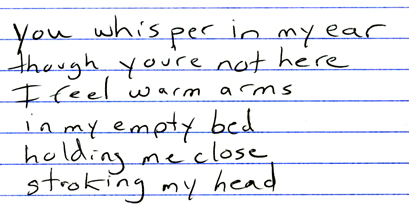 you whisper in my ear
though youre not here
I feel warm arms
in my empty bed
holding me close
stroking my head